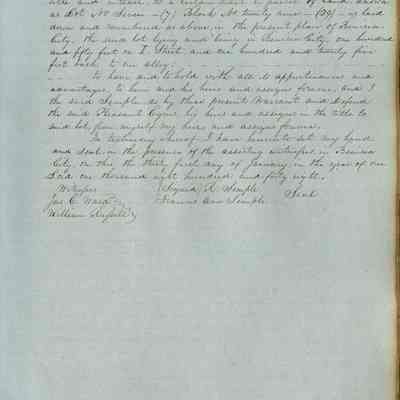 title and interest to a certain tract or parcel of land known
as Lot No Seven (7) Block No twenty nine (29) as laid
down and numbered as above, in the present plan of Benicia
City, the said lot lying and being in Benicia City one hundred
and fifty feet on I Street and one hundred and twenty five
feet back to an alley.
To have and to hold with all its appurtenances and
advantages, to him and his heirs and assigns forever. And I
the said Semple do by these presents Warrant and defend
the said Pleasant his heirs and assigns in the title to
said lot from myself my heirs and assigns forever.
In testimony whereof I have hereunto set my hand
and Seal in the presence of the assisting witnesses in Benicia
City, on this the thirty first day of January, in the year of our
Lord one thousand eight hundred and forty eight.
Witnesses (Signed) R. Semple
Jas. C. Ward Frances Ann Semple Seal
William